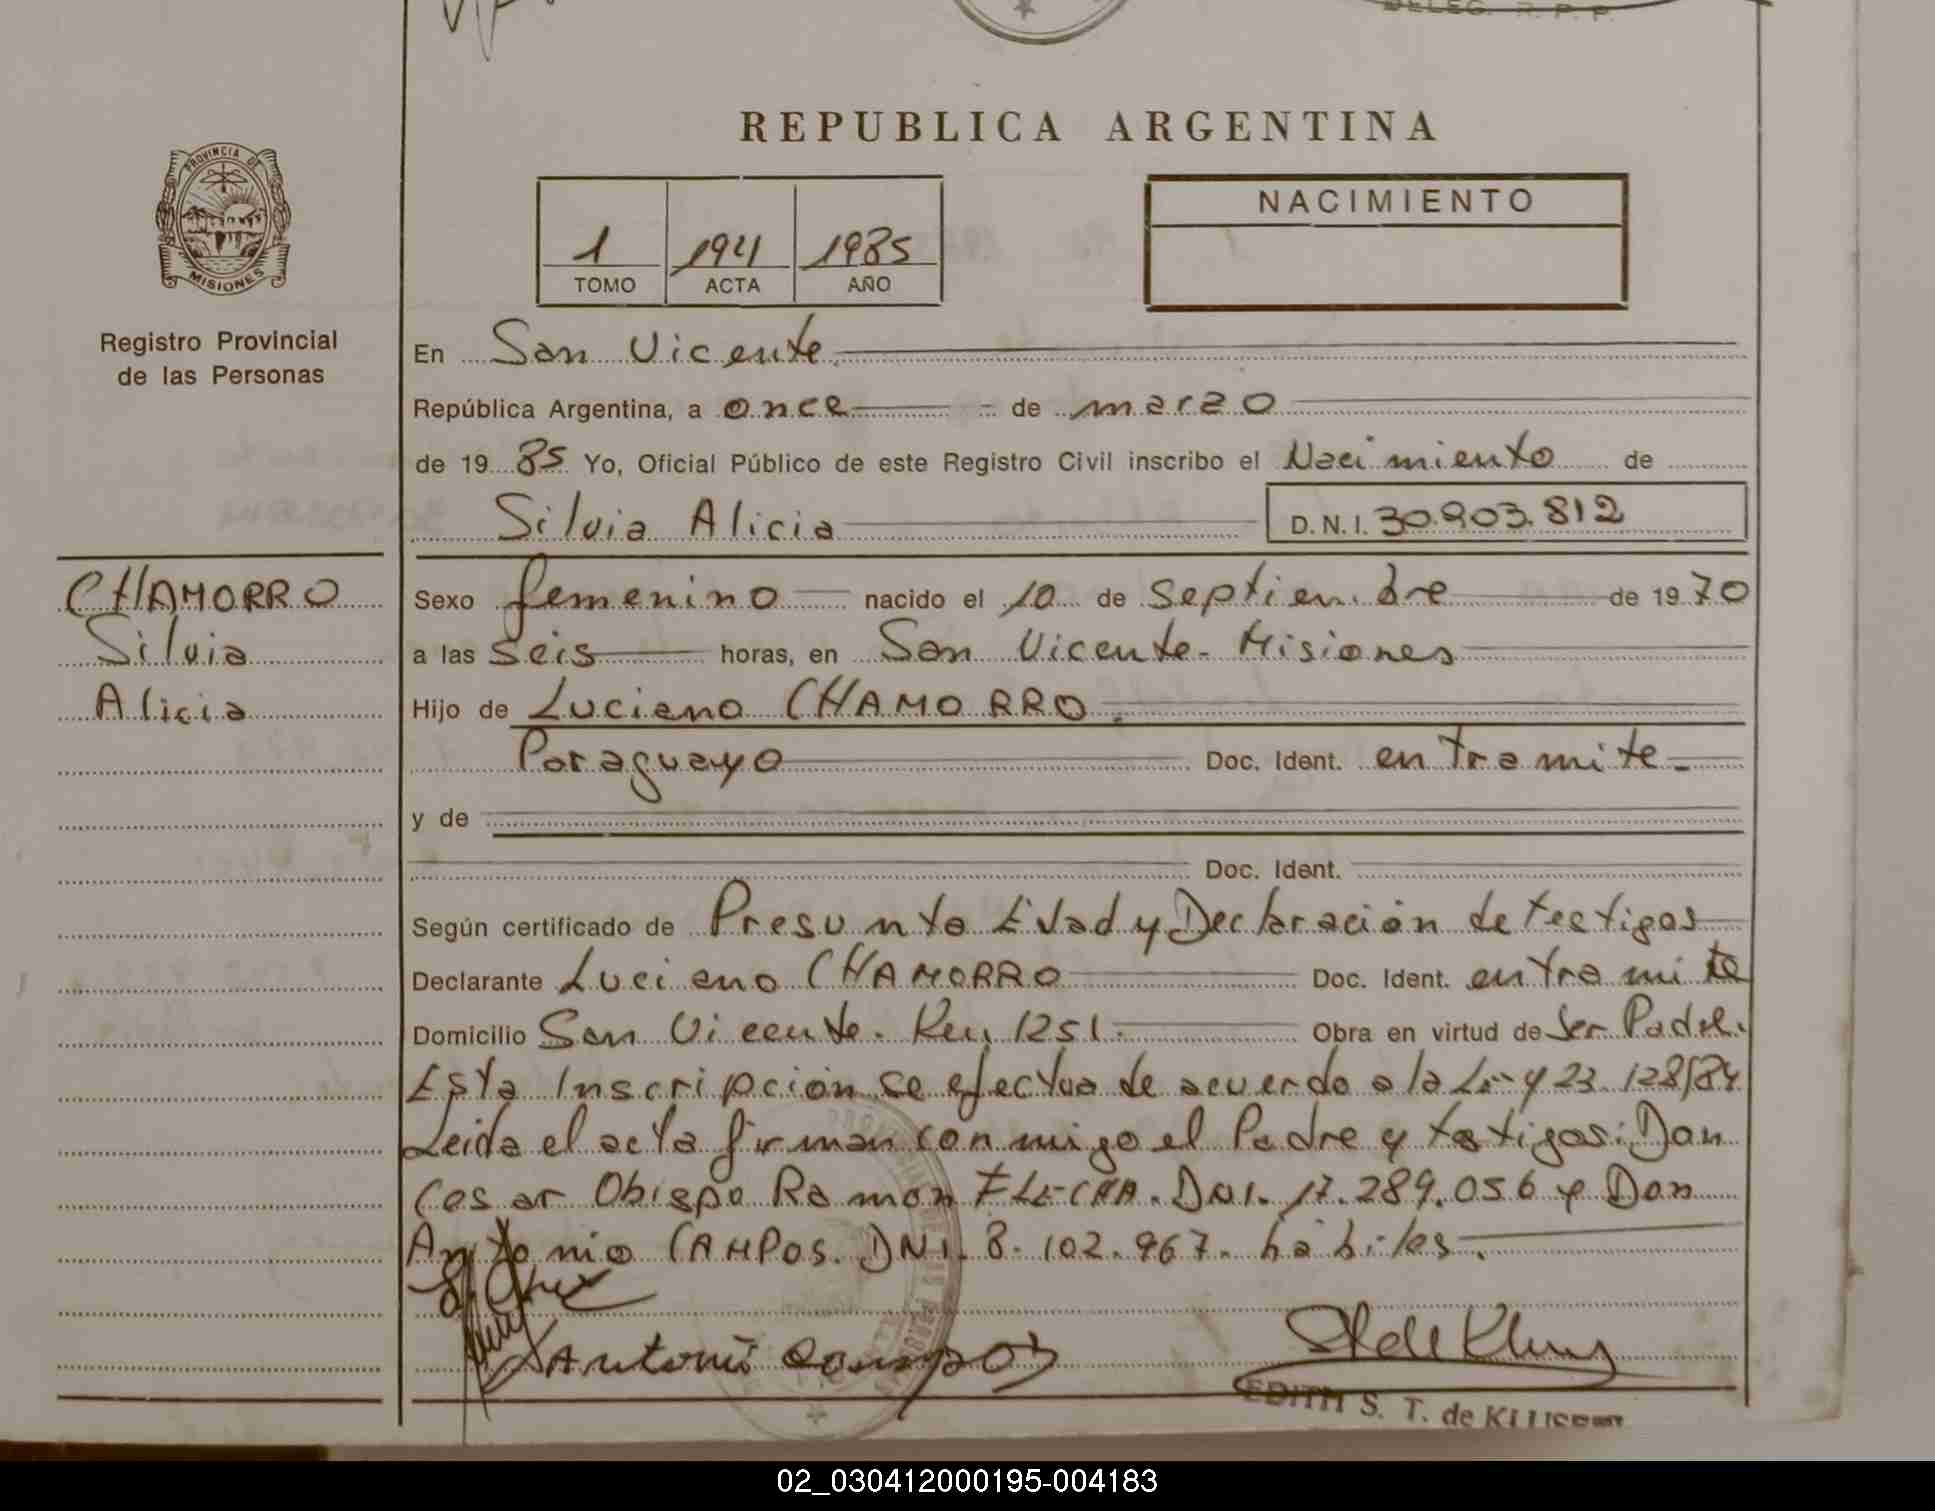 DELEG. R. P. P.
REPUBLICA ARGENTINA
PROVINCIA DE
MISIONES
Registro Provincial
de las Personas
1 194 1985
TOMO ACTA AÑO
NACIMIENTO
En San Vicente
República Argentina, a once de marzo
de 1985 Yo, Oficial Público de este Registro Civil inscribo el Nacimiento de
Silvia Alicia D.N.I. 30.903.812
CHAMORRO
Silvia
Alicia
Sexo femenino nacido el 10 de Septiembre de 1970
a las seis horas, en San Vicente - Misiones
Hijo de Luciano CHAMORRO.
Paraguayo Doc. Ident. en Tramite -
y de
Doc. Ident.
Según certificado de Presunta Edad y Declaración de testigos
Declarante Luciano CHAMORRO Doc. Ident. en tramite
Domicilio San Vicente. Km 1251. Obra en virtud de Ser Padre.
Esta Inscripción se efectua de acuerdo a la Ley 23.128/84
Leida el acta firman conmigo el Padre y testigos: Don
Cesar Obispo Ramon FLECHA. DNI. 17.289.056 y Don
Antonio CAMPOS. DNI. 8.102.967. hábiles.
Antonio Campos
EDITH S. T. de
02_030412000195-004183